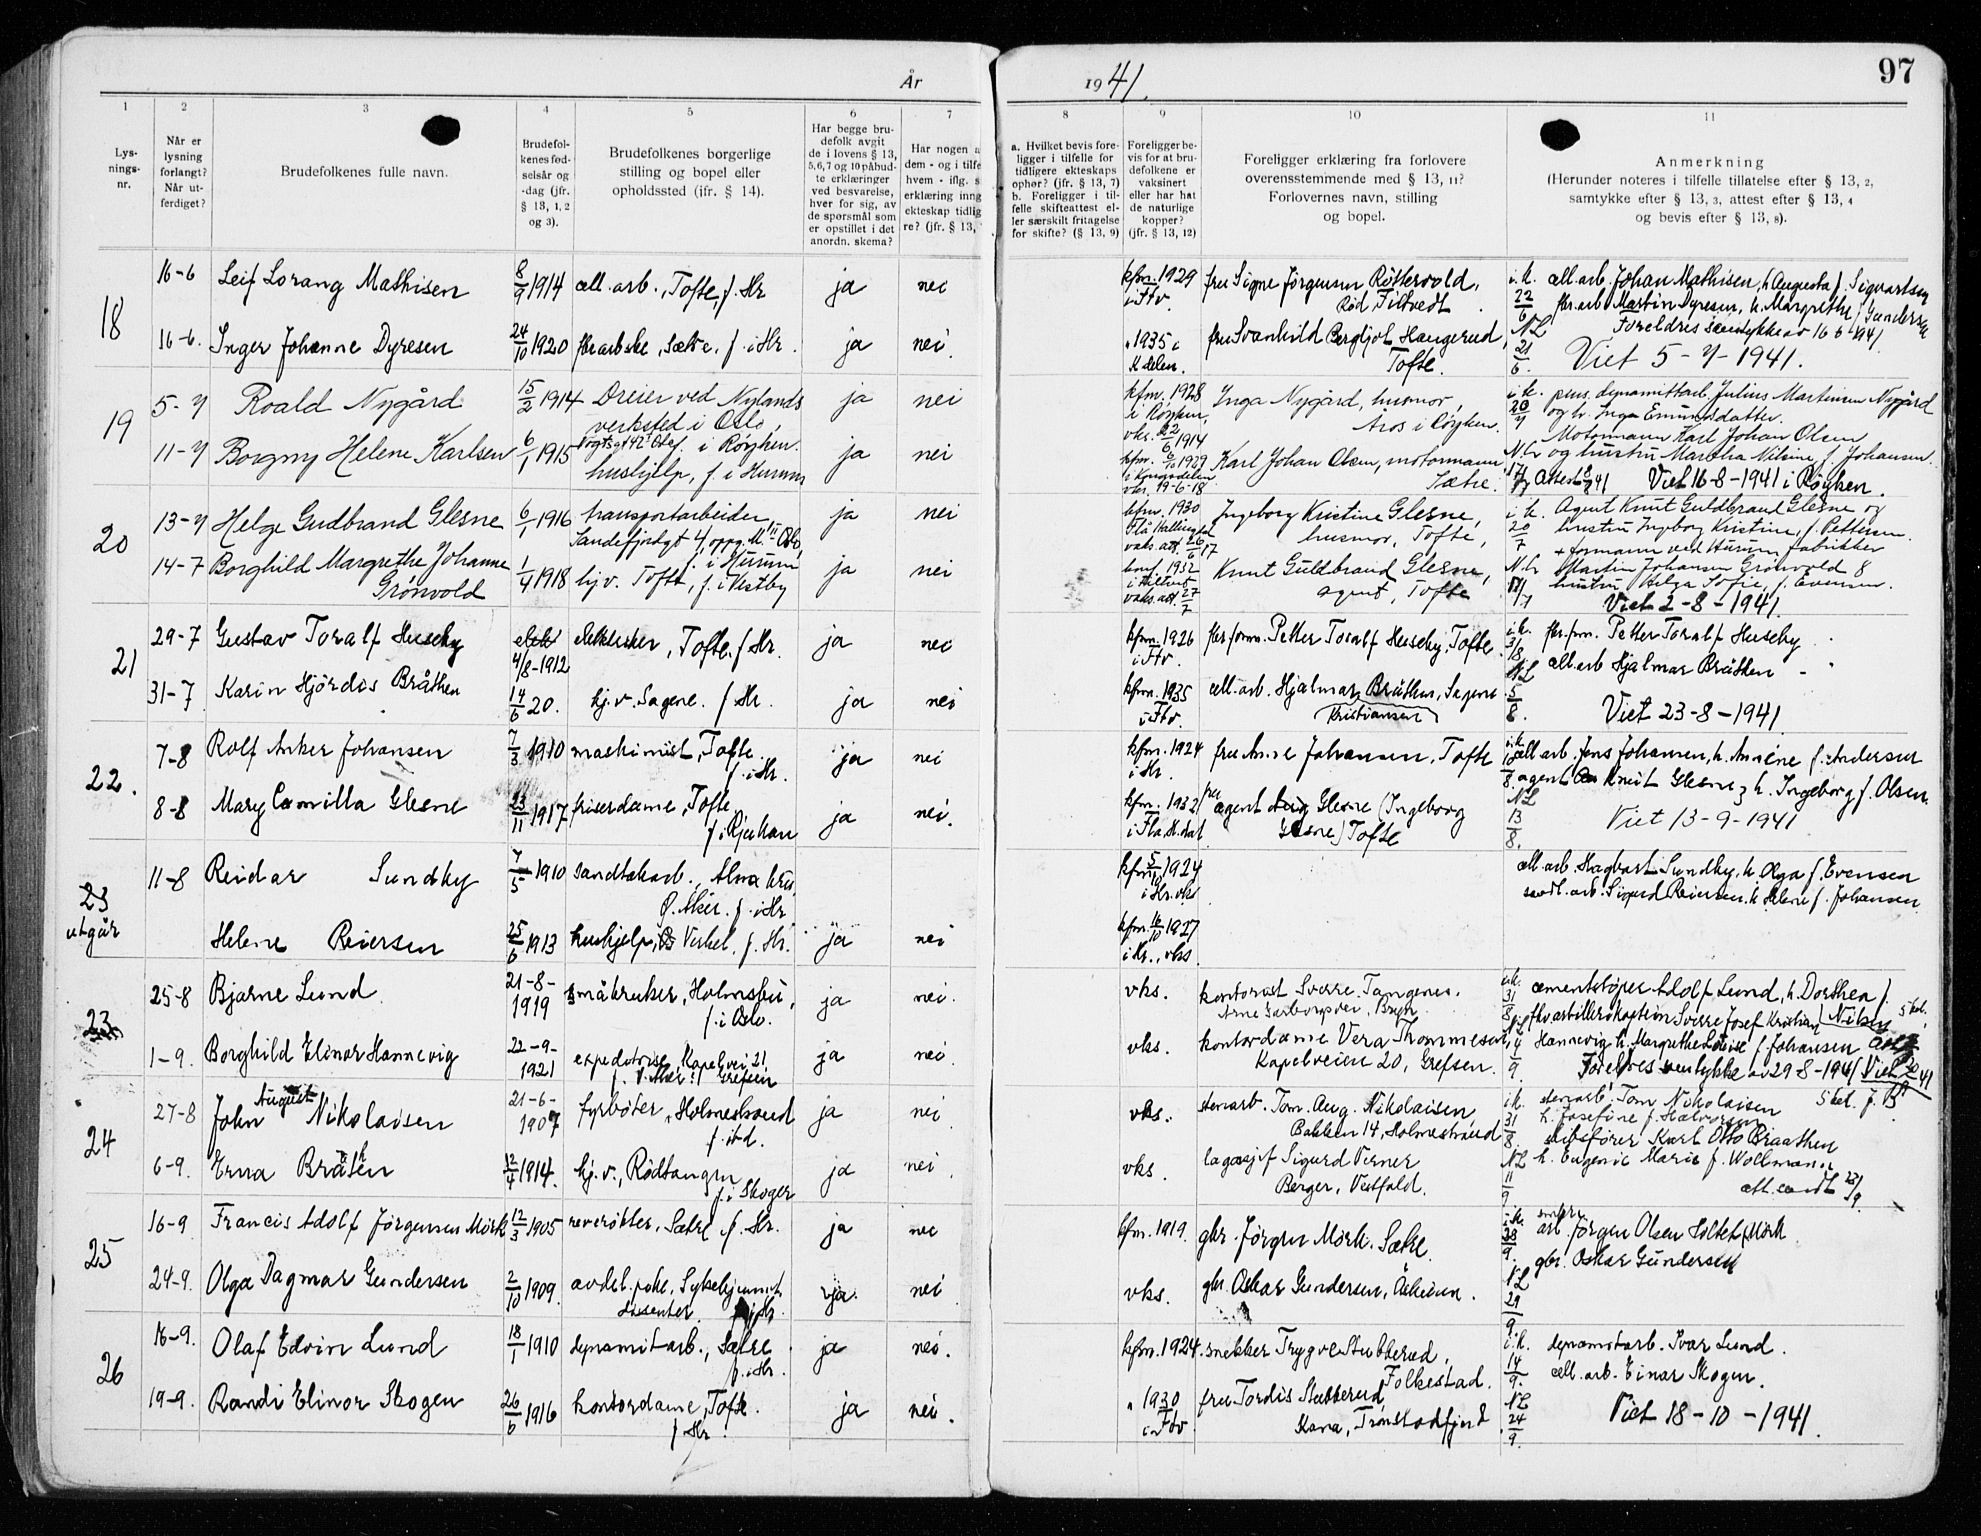 År 1941.
97
1 2 3 4 5 6 7 8 9 10 11
Lys-
nings-
nr.
Når er
lysning
forlangt?
Når ut-
ferdiget?
Brudefolkenes fulle navn.
Brudefol-
kenes fød-
selsår og
-dag (jfr.
§ 13, 1, 2
og 3).
Brudefolkenes borgerlige
stilling og bopel eller
opholdssted (jfr. § 14).
Har begge bru-
defolk avgit
de i lovens § 13,
5, 6, 7 og 10 påbud-
te erklæringer
ved besvarelse,
hver for sig, av
de spørsmål som
er opstillet i det
anordn. skema?
Har nogen a
dem - og i tilfe
hvem - iflg. s
erklæring inng
ekteskap tidlig
re? (jfr. § 13,
a. Hvilket bevis fore-
ligger i tilfelle for
tidligere ekteskaps
ophør? (jfr. § 13, 7)
b. Foreligger i til-
felle skifteattest el-
ler særskilt fritagelse
for skifte? (§ 13, 9)
Foreligger be-
vis for at bru-
defolkene er
vaksinert
eller har hat
de naturlige
kopper?
(jfr. § 13, 12)
Foreligger erklæring fra forlovere
overensstemmende med § 13, 11?
Forlovernes navn, stilling
og bopel.
Anmerkning
(Herunder noteres i tilfelle tillatelse efter § 13, 2,
samtykke efter § 13, 3, attest efter § 13, 4
og bevis efter § 13, 8).
18
16-6 Leif Lorang Mathisen 8/9 1914 cell. arb., Tofte, f. Hr ja nei kfm. 1929 i Ftv. fru Signe Jörgensen Röttervold, Röd, Filtvedt i.k. 22/6 cell. arb. Johan Mathisen, h. Augusta f. Sigvartsen
16-6. Inger Johanne Dyresen 24/10 1920 Sætre, f. i Hr. ja nei. " 1935 i K delen. fru Svanhild Bergljot Haugerud, Tofte. NL 21/6 fbr. arb Martin Dyresen, h. Margrethe f. Gundersen
Foreldres samtykke av 16 6 1941
Viet 5-7-1941.
19
5-7 Roald Nygård 15/2 1914 Dreier ved Nylands
verksted i Oslo, f. i Röyken. ja nei kfm. 1928 i Röyken, Inga Nygård, husmor, Åros i Röyken. i.k. 20/7 pens. dynamittarb. Julius Martinsen Nygård
og h. Inga Emundsdatter.
11-7 Borgny Helene Karlsen 6/1 1915 hushjelp, f. i Hurum ja nei kfm. 1929 Karl Johan Olsen, motormann Sætre. Motormann Karl Johan Olsen
og hustru Martha Nilsine, f. Johansen.
Viet 16-8-1941 i Röyken.
20
13-7 Helge Gudbrand Glesne 6/1 1916 transportarbeider
Sandefjordgt 4, oppg. M. II Oslo, f. i Hurum ja nei kfm. 1930 Ingeborg Kristine Glesne, husmor, Tofte, i.k. 20/7 Agent Knut Guldbrand Glesne og
hustru Ingeborg Kristine, f. Pettersen.
14-7 Borghild Margrethe Johanne
Grönvold 1/4 1918 hj.v. Tofte, f. i Vestby ja nei konf. 1932 Knut Guldbrand Glesne, agent, Tofte formann ved Hurum Fabrikker
Martin Johansen Grönvold &
hustru Helga Sofie, f. Evensen.
Viet 2-8-1941.
21
29-7 Gustav Toralf Huseby 4/8-1912 elektriker, Tofte. f Hr. ja nei kfm. 1926 i Ftv. fbr. form. Petter Toralf Huseby, Tofte i.k. 31/8 fbr. frm. Petter Toralf Huseby
31-7 Karin Hjördis Bråthen 14/6 20. hj.v. Sagene. f Hr. ja nei kfm. 1935 i Ftv. cell. arb. Hjalmar Bråthen, Sagene
Kristiansen NL 5/8. cell. arb Hjalmar Bråthen
Viet 23-8-1941
22.
7-8 Rolf Anker Johansen 7/3 1910 maskinist, Tofte f. i Hr. ja nei kfm. 1924 i Hr. fru Anne Johansen, Tofte cell. arb. Jens Johansen, h. Annine f. Andersen
8-8 Mary Camilla Glesne 23/11 1917 friserdame, Tofte f. i Rjukan ja nei. kfm. 1932 agent Glesne (Ingeborg
Glesne) Tofte NL 13/8. agent Knut Glesne, h. Ingeborg f. Olsen.
Viet 13-9-1941
23
utgår
11-8 Reidar Sundby 7/5 1910 sandtakarb., f. i Hr kfm 1924 i Hr. vks cell. arb. Hagbart Sundby, h Olga f. Evensen
Helene Reiersen 25/6 1913 hushjelp, Verkel, f. Hr. ja nei kfm. 16/10 1927 i Hr., vks. sandt. arb. Sigurd Reiersen, h Helene f. Johansen
23
25-8 Bjarne Lund 21-8-1919 småbruker, Holmsbu, f. i Oslo. ja nei. vks. kontorist Sverre Tangenes,
Arne Garborgsvei, Bryn 31/8 cementstöper Adolf Lund, h. Dorthea f. Nilsen
1-9. Borghild Elinor Hannevig 22-9-1921 expeditrise, Kapelvei 21, Grefsen ja nei. vks. kontordame Vera Thommesen,
Kapelveien 20, Grefsen. 4/9. Sverre Josef Kristian
Hannevig h. Margrethe Lovise f. Johansen
Foreldres samtykke av 29 8-1941 Viet
24
27-8 John August Nikolaisen 21-6-1907 fyrböter, Holmestrand f. ibd. ja nei vks. stenarb. Tom. Aug. Nikolaisen
Bakken 14, Holmestrand i.k. 31/8. stenarb. Tom Nikolaisen
h. Josefine f. Halvorsen
6-9. Erna Bråten 12/4 1914. hj.v., Rödtangen f. i Skoger ja nei vks. Sigurd Verner
Berger, Vestfold. NL 11/9. skibsförer Karl Otto Braathen
h. Eugenie Marie f. Wollmann
att. sendt 23/9.
25
16-9 Francis Adolf Jörgensen Mörk 12/3 1905 reverökter, Sætre f. Hr. ja nei kfm. 1919. gbr. Jörgen Mörk. Sætre. i.k. 28/9. arb. Jörgen Olsen Holtet, Mörk
24-9. Olga Dagmar Gundersen 2/10 1909. Sykehjemmet
dissenter. f. Hr. ja. nei vks. gbr. Oskar Gundersen, NL 29/9. gbr. Oskar Gundersen
26
16-9. Olaf Edvin Lund 18/1 1910 dynamitarb., Sætre f. i Hr. ja nei. kfm. 1924. snekker Trygve Stubberud, Folkestad. i.k. 14/9. dynamitarb. Ivar Lund.
19-9. Randi Elinor Skogen 26/6 1916 kontordame, Tofte. f Hr. ja nei. " 1930 i Ftv fru Tordis Stubberud
Kana, NL 24/9. cell. arb. Einar Skogen.
Viet 18-10-1941.